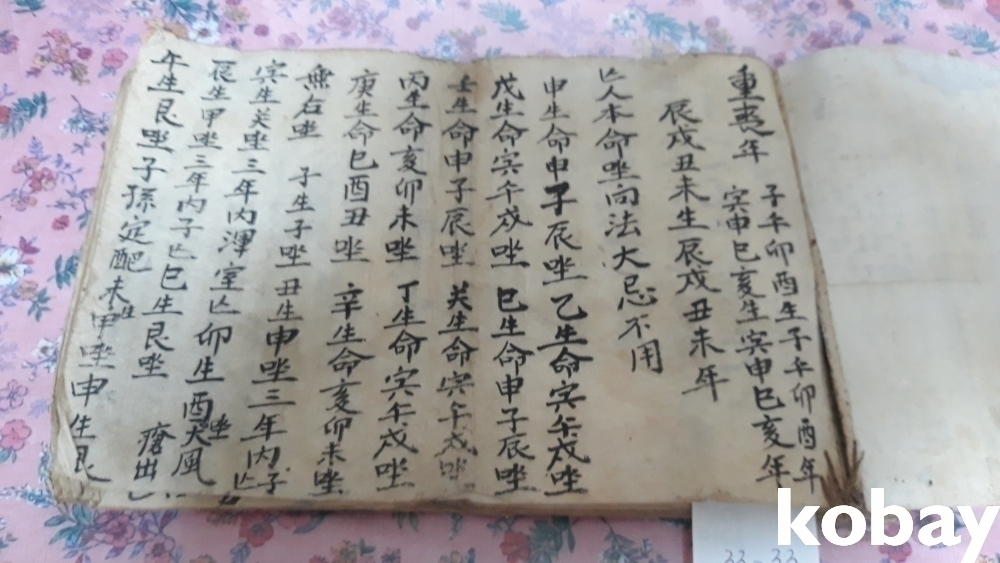 重喪年 子午卯酉生子午卯酉年
寅申巳亥生寅申巳亥年
辰戌丑未生辰戌丑未年
亡人本命坐向法大忌不用
申生命申子辰坐 乙生命寅午戌坐
戊生命寅午戌坐 巳生命申子辰坐
壬生命申子辰坐 癸生命寅午戌坐
丙生命亥卯未坐 丁生命寅午戌坐
庚生命巳酉丑坐 辛生命亥卯未坐
無右坐 子生子坐丑生申坐三年內子
寅生癸坐三年内渾室亡卯生酉坐
辰生甲坐三年内子亡巳生艮坐 大風瘡出
午生艮坐子孫定配未生甲坐申生艮
kobay
33-33